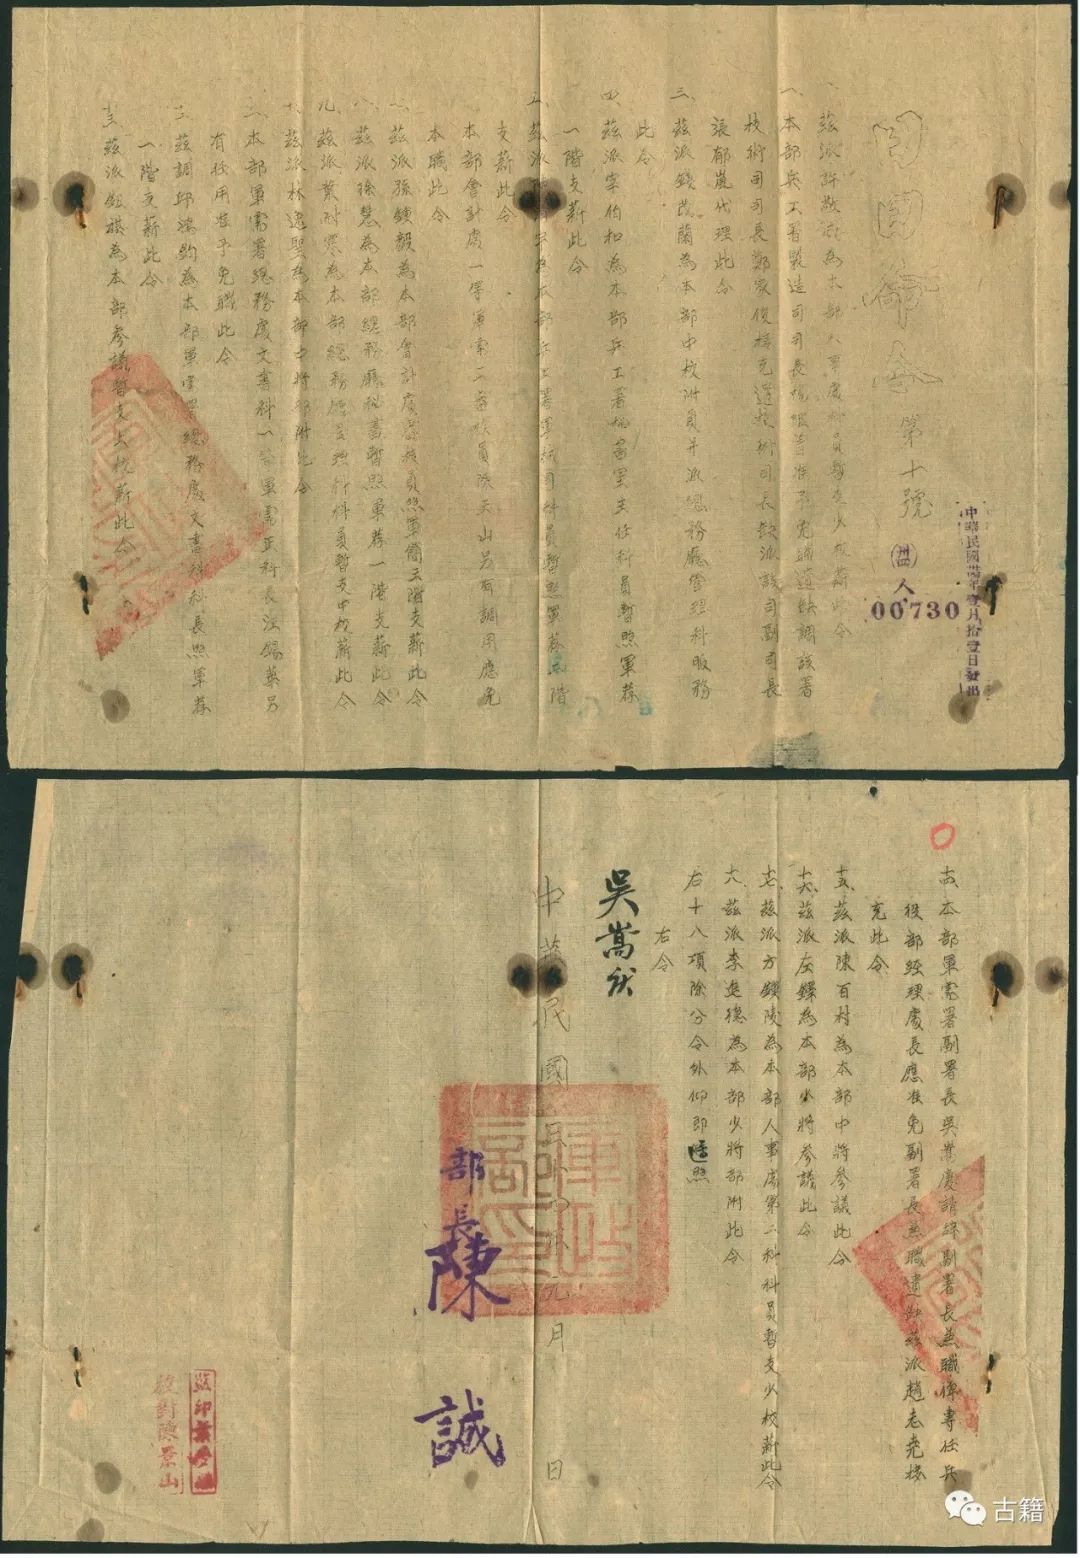 命令 第十號
㊙人
00730
中華民國卅年壹月拾壹日發出
一、茲派許敬 為本部人事處科員暫支少校薪此令
二、本部兵工署製造司司長楊繼曾准予免 遺缺調該署
技術司司長鄭家俊接充遺技術司司長缺派該司副司長
張郁嵐代理此令
三、茲派錢茂蘭為本部中校附員并派總務廳管理科服務
此令
四、茲派宰伯和為本部兵工署秘書室主任科員暫照軍荐
一階支薪此令
五、茲派 為本部兵工署軍械司科員暫照軍荐三階
支薪此令
本部會計處一等軍需二 員陳天山另有調用應免
本職此令
茲派孫鍾毅為本部會計處 員照軍薦三階支薪此令
八、茲派孫慧為本部總務廳秘書暫照軍荐一階支薪此令
九、茲派葉耐寒為本部總務廳管理科科員暫支中校薪此令
十、茲派林逸聖為本部中將部附此令
二、本部軍需署總務處文書科一等軍需正科長汪錫華另
有任用准予免職此令
茲調邱鴻鈞為本部軍需署總務處文書科科長照軍荐
一階支薪此令
茲派鈕祺為本部參議暫支上校薪此令
本部軍需署副署長吳嵩慶請辭副署長兼職俾專任兵
役部經理處長應准免副署長兼職遺缺茲派趙志堯接
充此令
十五、茲派陳百村為本部中將參議此令
十六、茲派左鐸為本部少將參議此令
十七、茲派方鎮陵為本部人事處第二科科員暫支少校薪此令
十八、茲派李進德為本部少將部附此令
右十八項除分令外仰即遵照
右令
吳嵩
中華民國 元月 日
部長陳誠
監印
校對陳景山
古籍